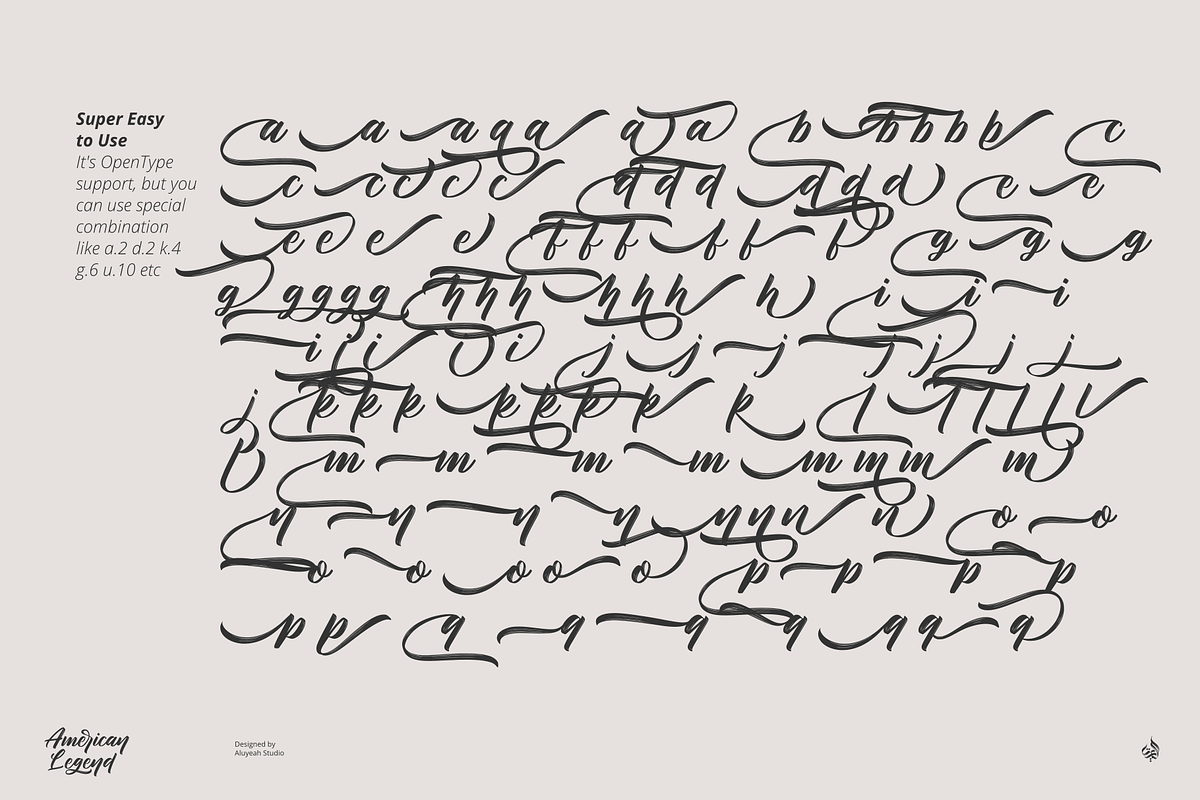 Super Easy
to Use
It's OpenType
support, but you
can use special
combination
like a.2 d.2 k.4
g.6 u.10 etc
a a a a a a a b b b b b c
c c c c c d d d d d d e e
e e e e f f f f f f g g g
g g g g g h h h h h h h i i i
i i i i i j j j j j j j
j k k k k k k k k l l l l l l
l m m m m m m m m
n n n n n n n n o o
o o o o o p p p p
p p q q q q q q q
American
Legend
Designed by
Aluyeah Studio